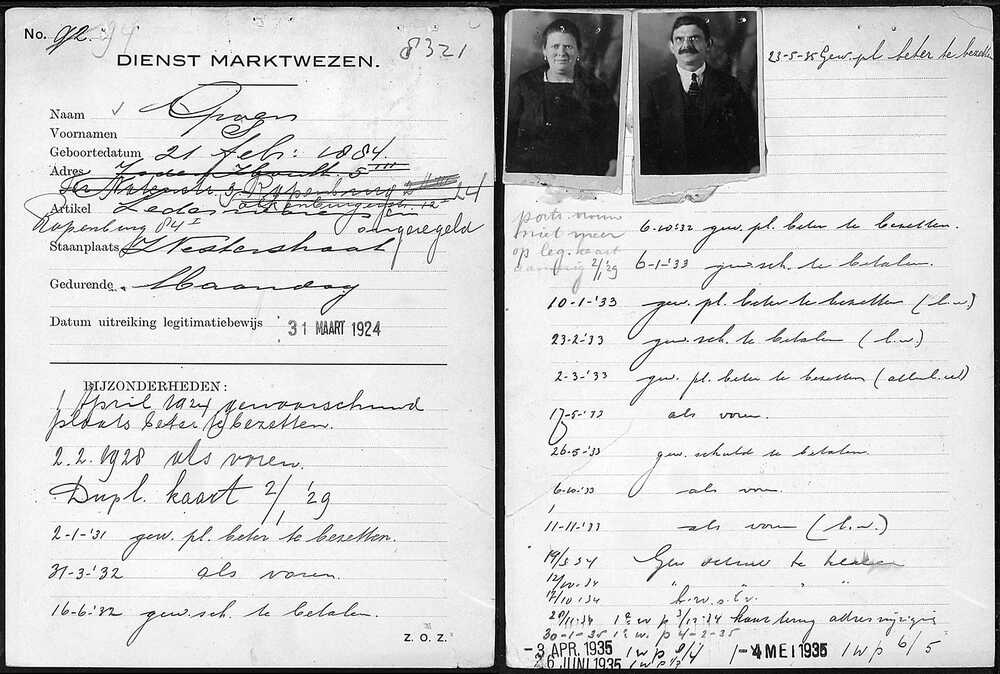 No. 92. 94
8321
DIENST MARKTWEZEN.
Naam
Voornamen S
Geboortedatum 21 Feb: 1884
Adres 5 III
3 Rapenburg 24
Artikel
Rapenburg 84 I ongeregeld
Staanplaats Westerstraat
Gedurende Maandag
Datum uitreiking legitimatiebewijs 31 MAART 1924
BIJZONDERHEDEN:
1 April 1924 gewaarschuwd
plaats beter te bezetten.
2.2.1928 als voren.
Dupl. kaart 2/1 '29
2-1-'31 gew. pl. beter te bezetten.
31-3-'32 als voren.
16-6-'32 gew. sch. te betalen.
Z. O. Z.
23-5-35 Gew. pl beter te bezetten
portr. vrouw
niet meer
op leg. kaart
aanwezig 2/1 '29
6-10-'32 gew. pl. beter te bezetten.
6-1-'33 gew. sch. te betalen.
10-1-'33 gew. pl. beter te bezetten (l.w.)
23-2-'33 gew. sch. te betalen (l.w.)
2-3-'33 gew. pl. beter te bezetten
17-5-'33 als voren.
26-5-'33 gew. schuld te betalen.
6-10-'33 als voren.
11-11-'33 als voren (l.w.)
19/3 34 Gew
12/10-34 " " "
17/10-34
29/11-34 1e w p 3/12-34
30-1-35 1e w. p 4-2-35
-3 APR. 1935 1 w p 8/4 1-4 MEI 1935 1 w p 6/5
26 JUNI 1935 1 w p